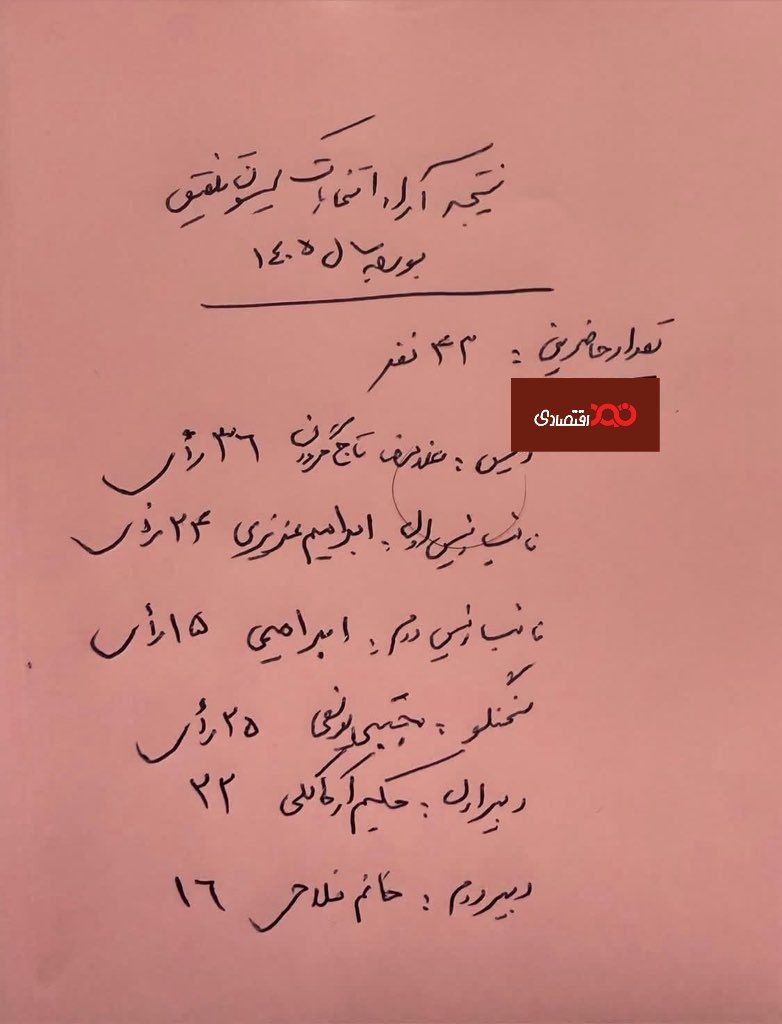 نتیجه آراء انتخابات کمیسیون تلفیق
بودجه سال ۱۴۰۵
تعداد حاضرین : ۴۳ نفر
نبض اقتصادی
رئیس : غلامرضا تاجگردون ۳۶ رأی
نائب رئیس اول : ابراهیم عزیزی ۲۴ رأی
نائب رئیس دوم : ابراهیمی ۱۵ رأی
سخنگو : مجتبی یوسفی ۲۵ رأی
دبیر اول : حکیم آرکاکلی ۲۲
دبیر دوم : خانم فلاحی ۱۶